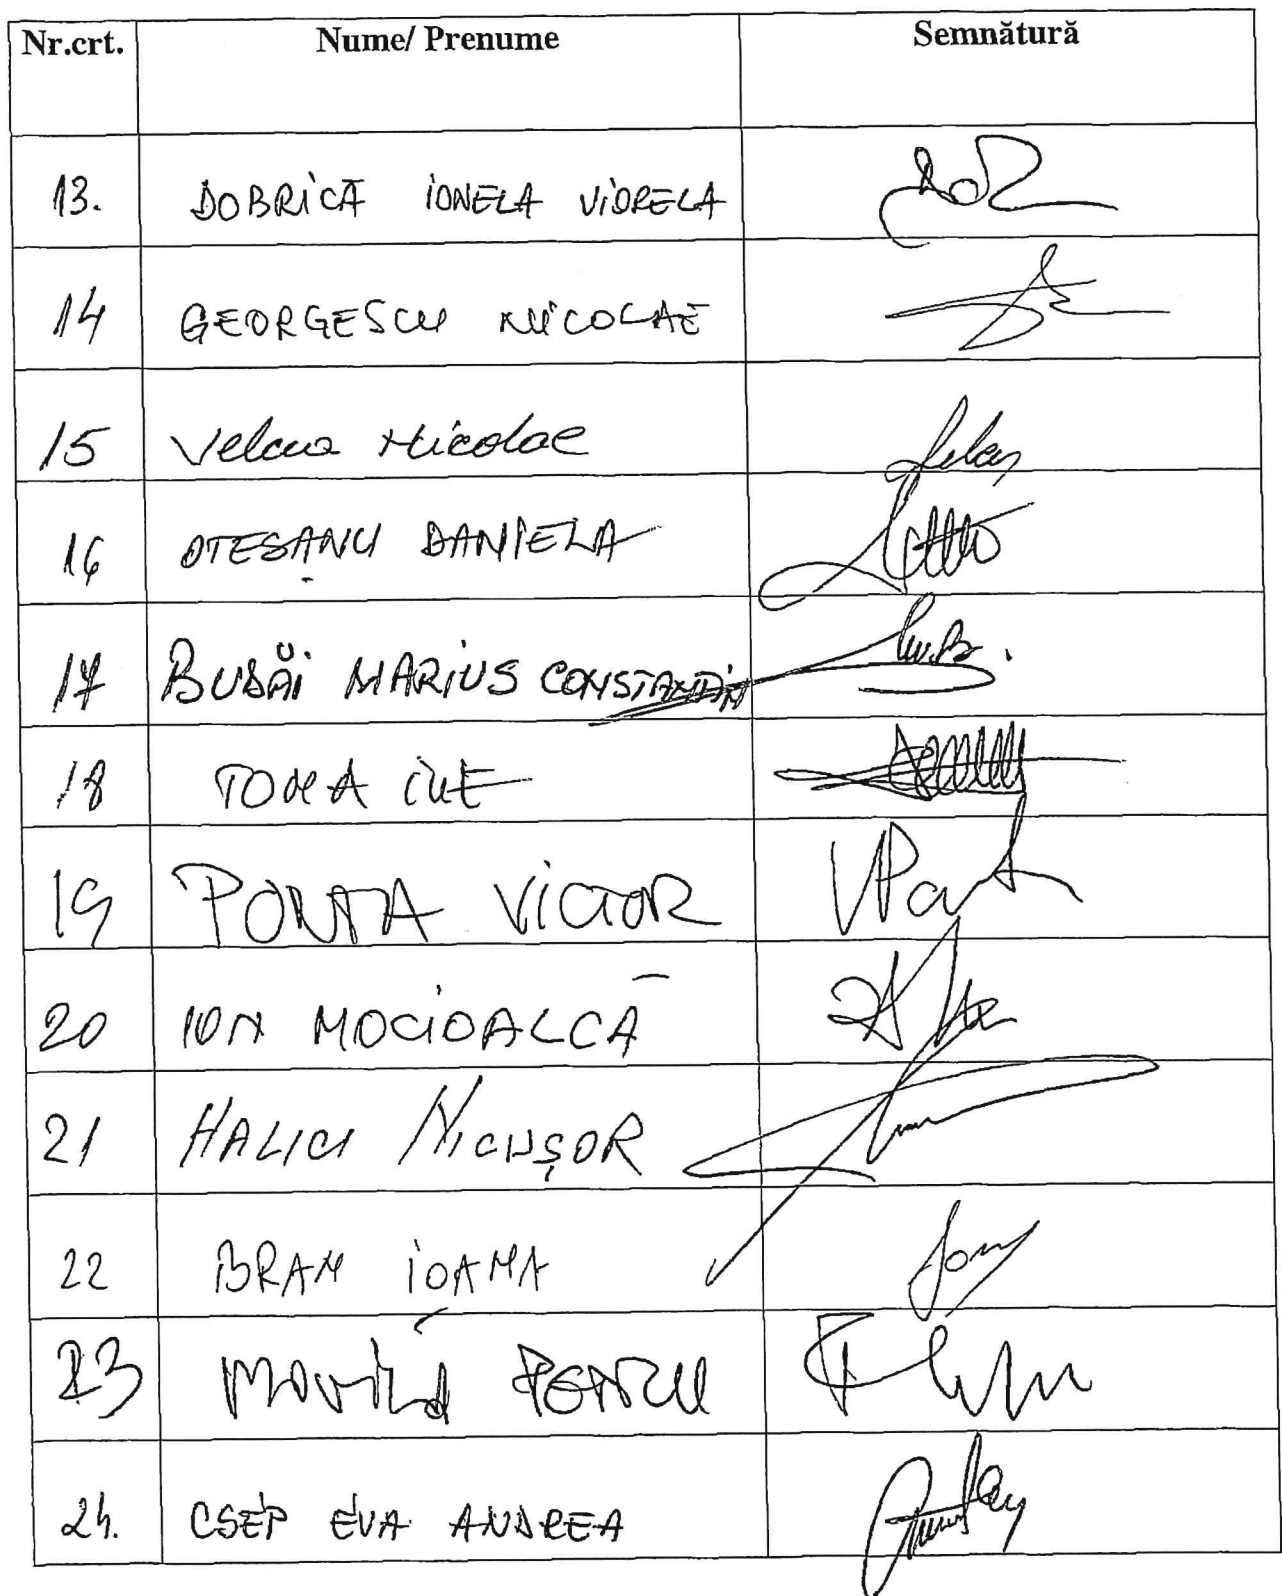 Nr.crt. Nume/ Prenume Semnătură
13. DOBRICĂ IONELA VIORELA
14 GEORGESCU NICOLAE
15 Velcea Nicolae
16 OTEȘANU DANIELA
17 BUDĂI MARIUS CONSTANTIN
18 TOMA ILIE
19 PONTA VICTOR VPonta
20 ION MOCIOALCĂ
21 HALICI NICUȘOR
22 BRAN IOANA
23 MOVILĂ PETRU
24. CSEP EVA ANDREA